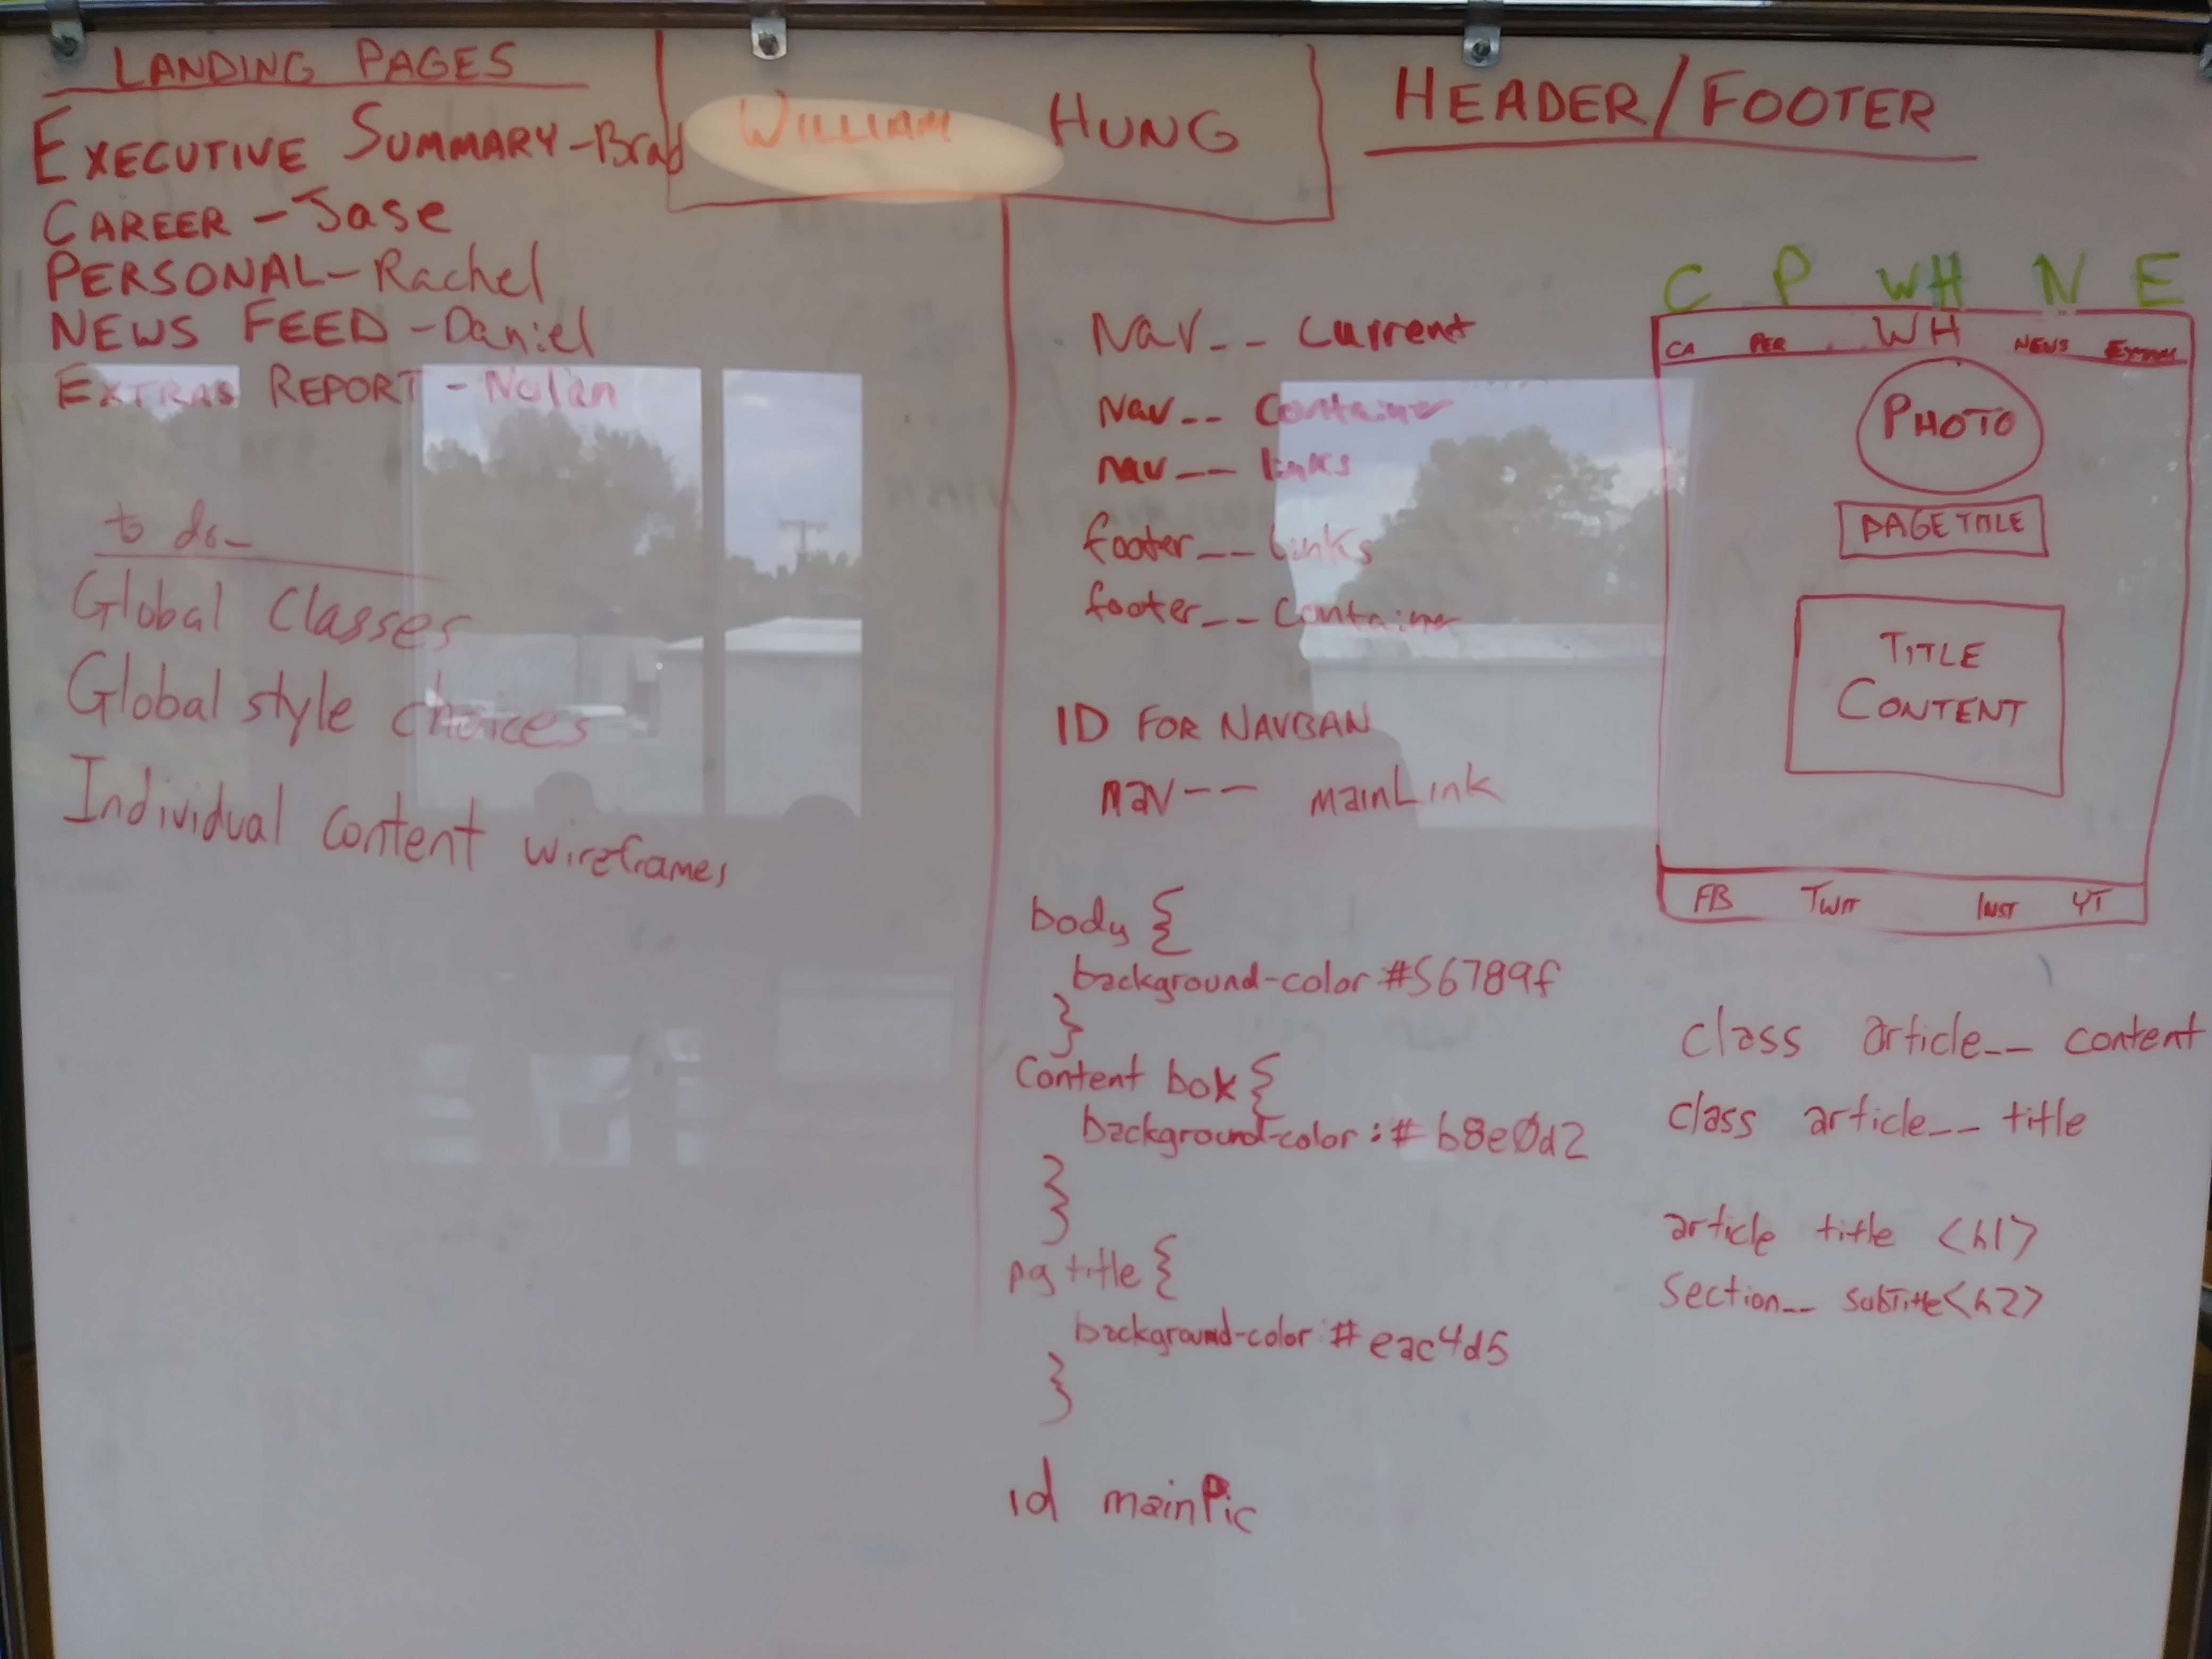 LANDING PAGES
EXECUTIVE SUMMARY-Brad
CAREER - Jase
PERSONAL- Rachel
NEWS FEED - Daniel
EXTRAS REPORT - Nolan
to do_
Global Classes
Global style choices
Individual content wireframes
WILLIAM HUNG
Nav__ Current
Nav__ Container
nav__ links
footer__ links
footer__ Container
ID FOR NAVBAR
nav-- mainLink
body {
background-color #56789f
}
Content box {
background-color: # b8e0d2
}
pg title {
background-color: # eac4d5
}
id mainPic
HEADER/FOOTER
C P WH N E
CA PER WH NEWS
PHOTO
PAGE TITLE
TITLE
CONTENT
FB TWIT INST YT
class article__ content
class article__ title
article title <h1>
Section__ subTitle <h2>